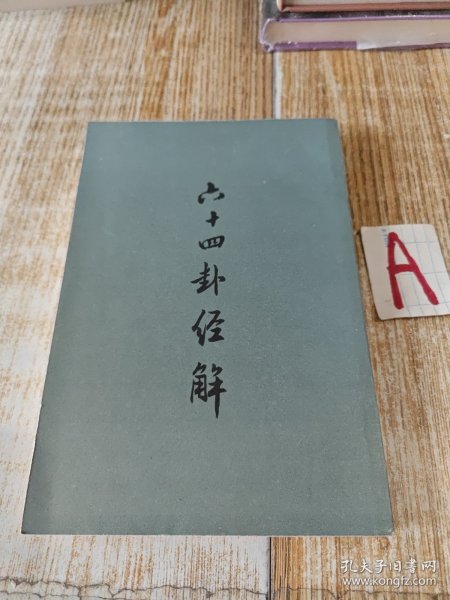 六十四卦经解
A
孔夫子旧书网
www.kongfz.com